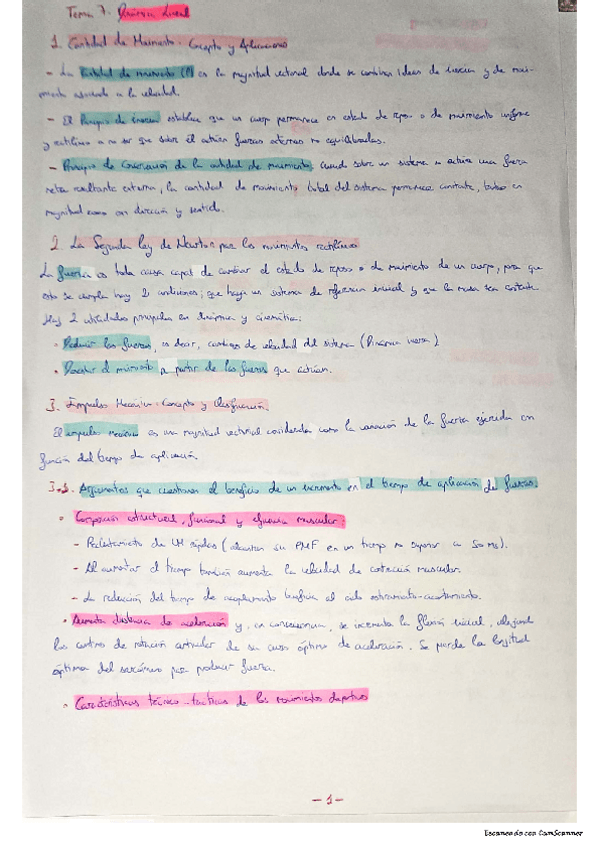 Tema 7. Dinámica Lineal
1. Cantidad de Movimiento. Concepto y Aplicaciones
- La Cantidad de movimiento (P) es la magnitud vectorial donde se combinan ideas de inercia y de movi-
miento asociado a la velocidad.
- El Principio de inercia establece que un cuerpo permanece en estado de reposo o de movimiento uniforme
y rectilíneo a no ser que sobre él actúen fuerzas externas no equilibradas.
- Principio de Conservación de la cantidad de movimiento: cuando sobre un sistema no actúa una fuerza
neta resultante externa, la cantidad de movimiento total del sistema permanece constante, tanto en
magnitud como en dirección y sentido.
2. La Segunda ley de Newton para los movimientos rectilíneos
La fuerza es toda causa capaz de cambiar el estado de reposo o de movimiento de un cuerpo, para que
esto se cumpla hay 2 condiciones; que haya un sistema de referencia inercial y que la masa sea constante.
Hay 2 utilidades principales en dinámica y cinemática:
· Deducir las fuerzas, es decir, cambios de velocidad del sistema (Dinámica inversa)
· Describir el movimiento a partir de las fuerzas que actúan.
3. Impulso Mecánico. Concepto y Clasificación.
El impulso mecánico es una magnitud vectorial considerada como la variación de la fuerza ejercida en
función del tiempo de aplicación
3.1. Argumentos que cuestionan el beneficio de un incremento en el tiempo de aplicación de fuerzas.
· Composición estructural, funcional y eficiencia muscular:
- Reclutamiento de UM rápidas (alcanzan su PMF en un tiempo no superior a 50 ms).
- Al aumentar el tiempo también aumenta la velocidad de contracción muscular.
- La reducción del tiempo de acoplamiento beneficia al ciclo estiramiento-acortamiento.
· Aumenta distancia de aceleración y, en consecuencia, se incrementa la flexión inicial, alejando
los centros de rotación articular de su curso óptimo de aceleración. Se pierde la longitud
óptima del sarcómero para producir fuerza.
· Características técnico-tácticas de los movimientos deportivos
- 1 -
Escaneado con CamScanner